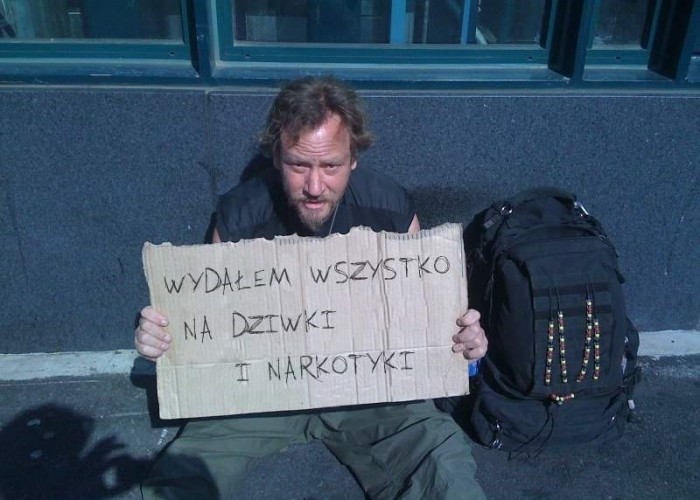 WYDAŁEM WSZYSTKO
NA DZIWKI
I NARKOTYKI